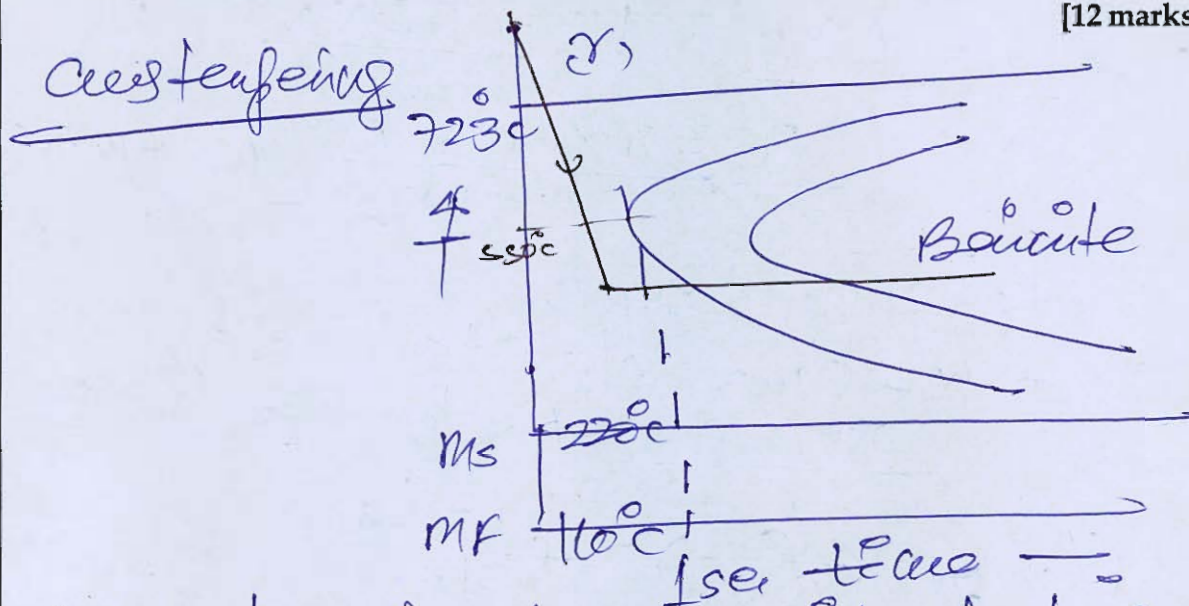 [12 marks
austempering
γ
723°C
T
550°C
Bainite
Ms
220°C
MF
110°C
1 sec time